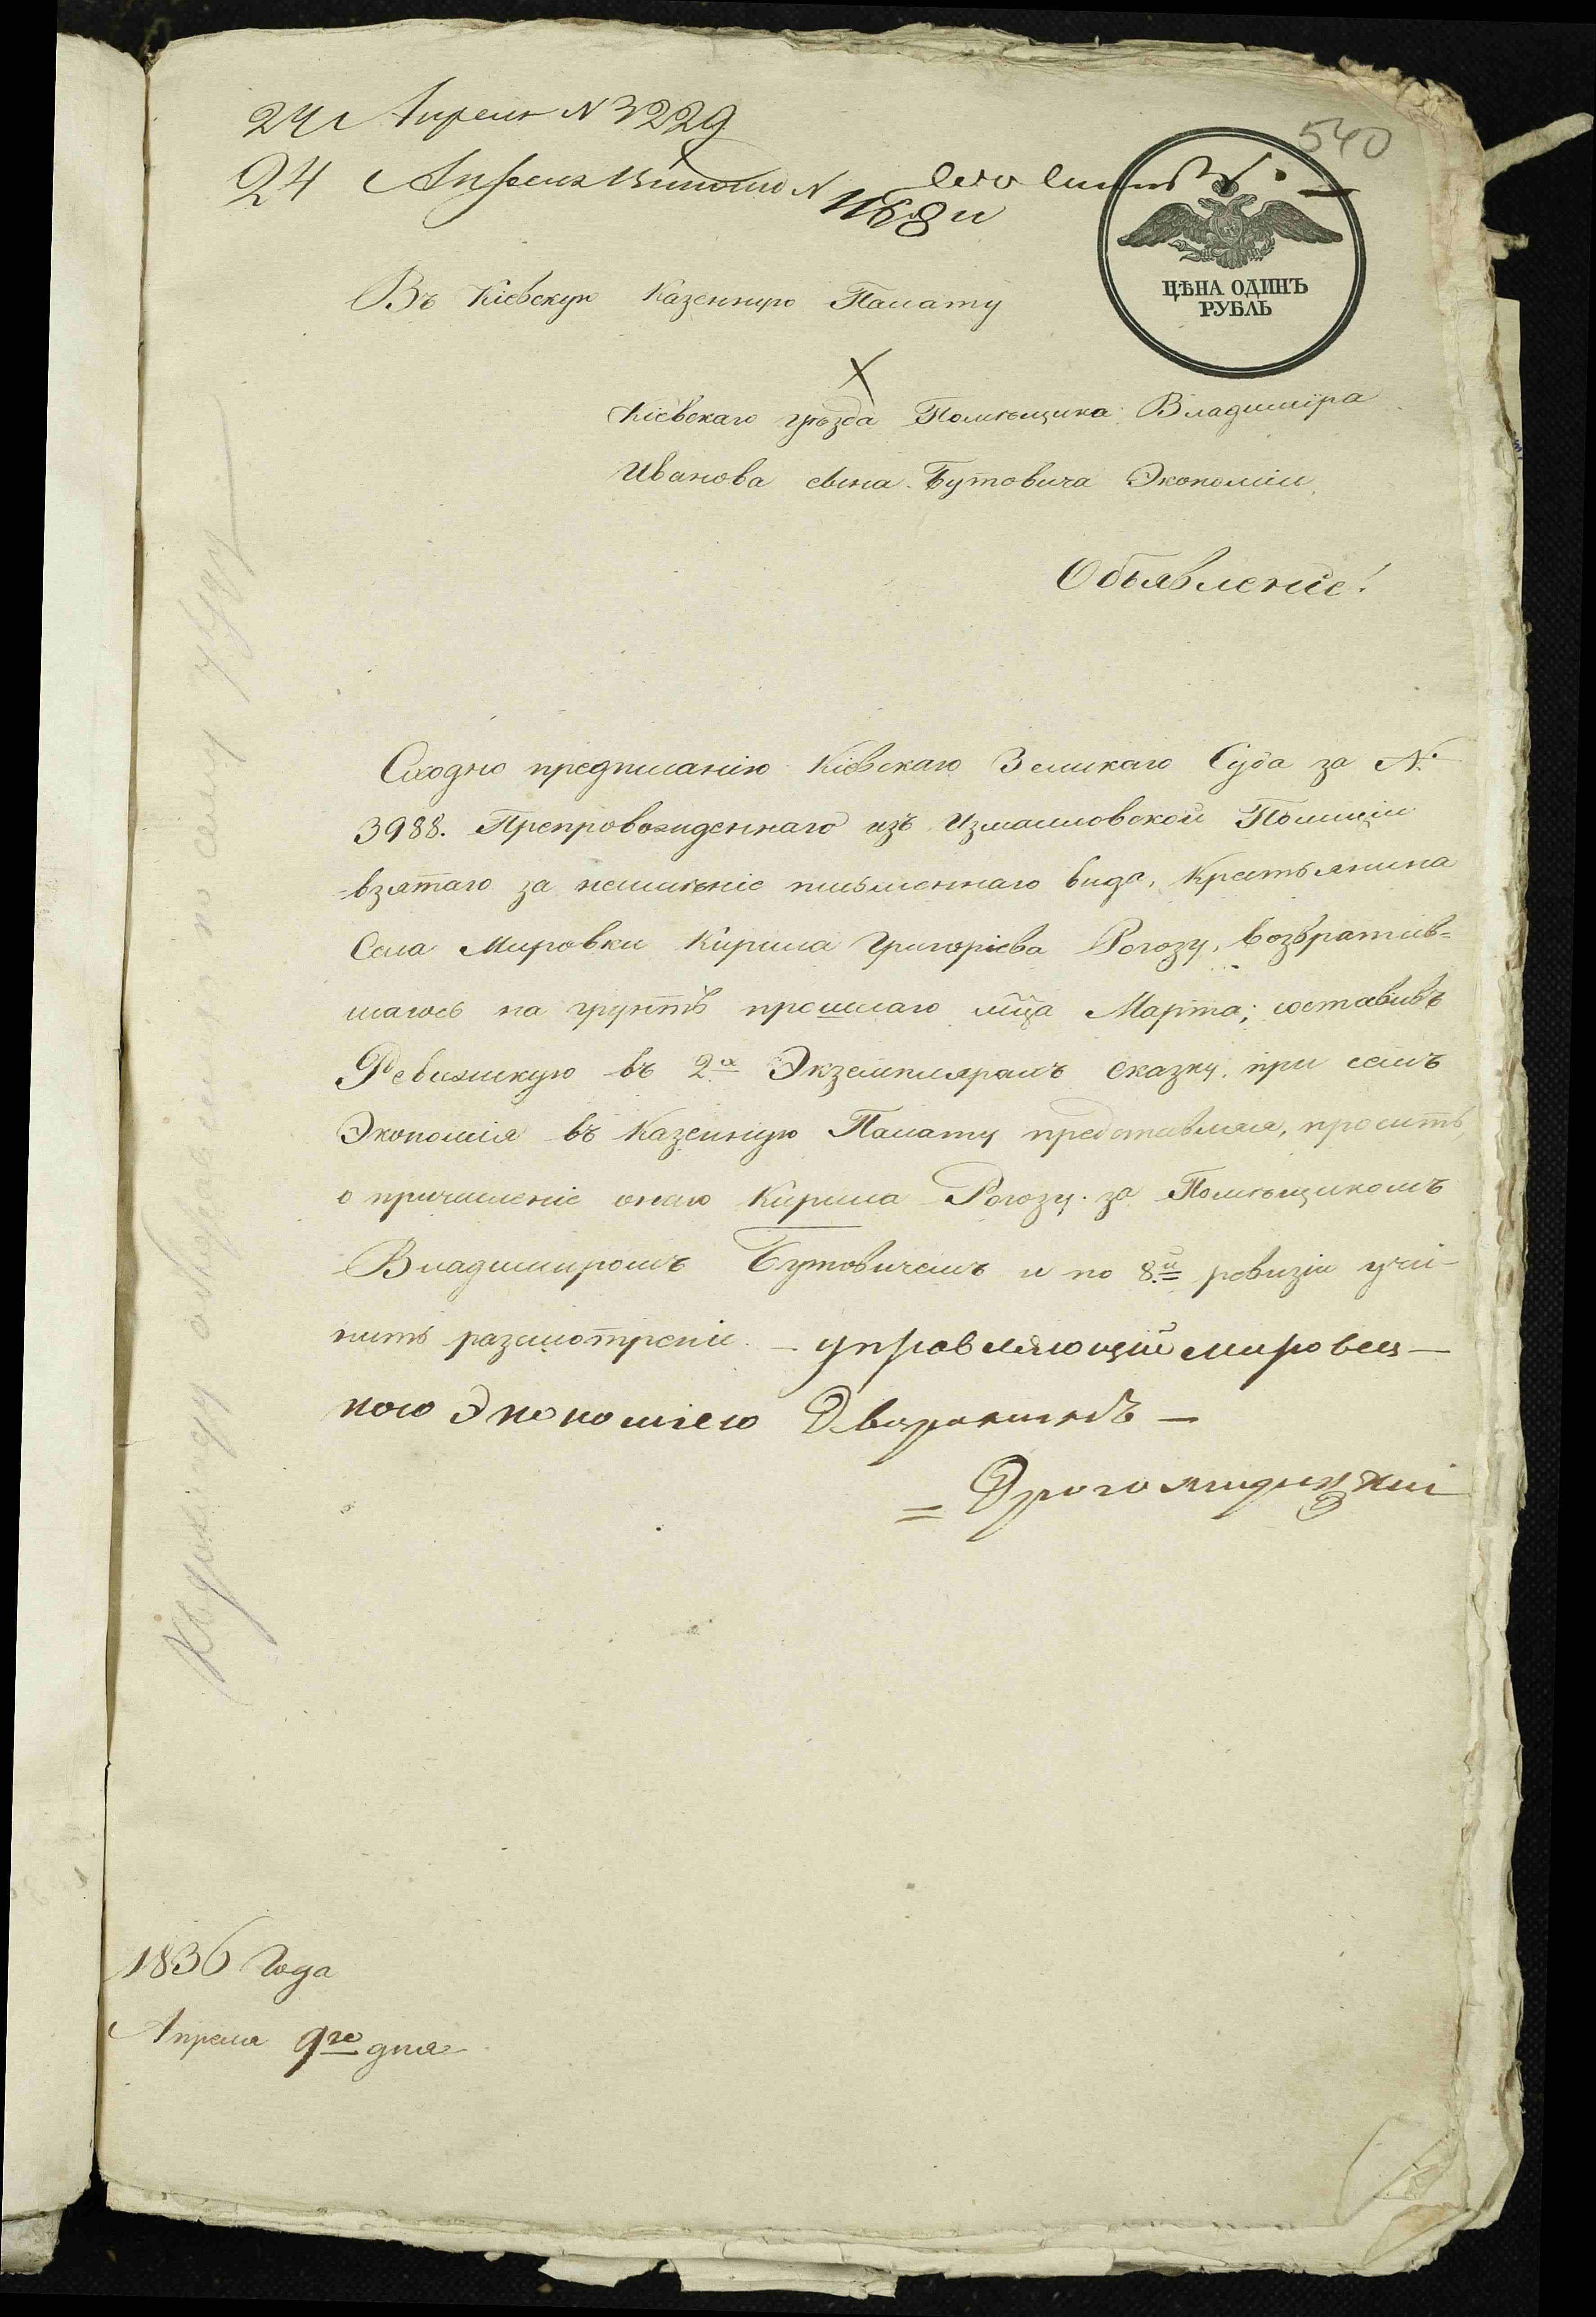 540
24 Апреля N 3229
24 Апреля N 1168
ЦѢНА ОДИНЪ
РУБЛЬ
Въ Кіевскую Казенную Палату
Кіевскаго уѣзда Помѣщика Владиміра
Иванова сына Бутовича Экономіи
Объявленіе!
Сходно предписанію Кіевскаго Земскаго Суда за №
3988. Препровожденнаго изъ Измаиловской Полиціи
взятаго за неимѣніе письменнаго вида, Крестьянина
Села Мировки Кирила Григорієва Рогозу, возвратив=
шагось на грунтъ прошлаго мца Марта; составивъ
Ревизскую въ 2х Экземплярахъ сказку при семъ
Экономія въ Казенную Палату представляя, проситъ,
о причисленіе онаго Кирила Рогозу за Помѣщикомъ
Владимиромъ Бутовичемъ и по 8й ревизіи учи-
нить разсмотреніе. — управляющій мировец-
кою Экономіею Дворянинъ —
1836 Года
Апреля 9го дня